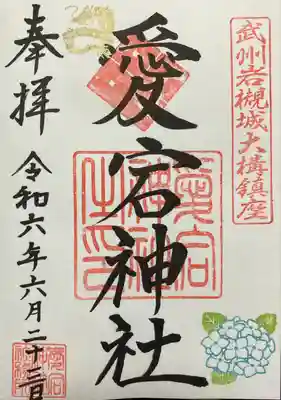 武州岩槻城大構鎮座
愛宕神社
奉拝
令和六年六月二十三日